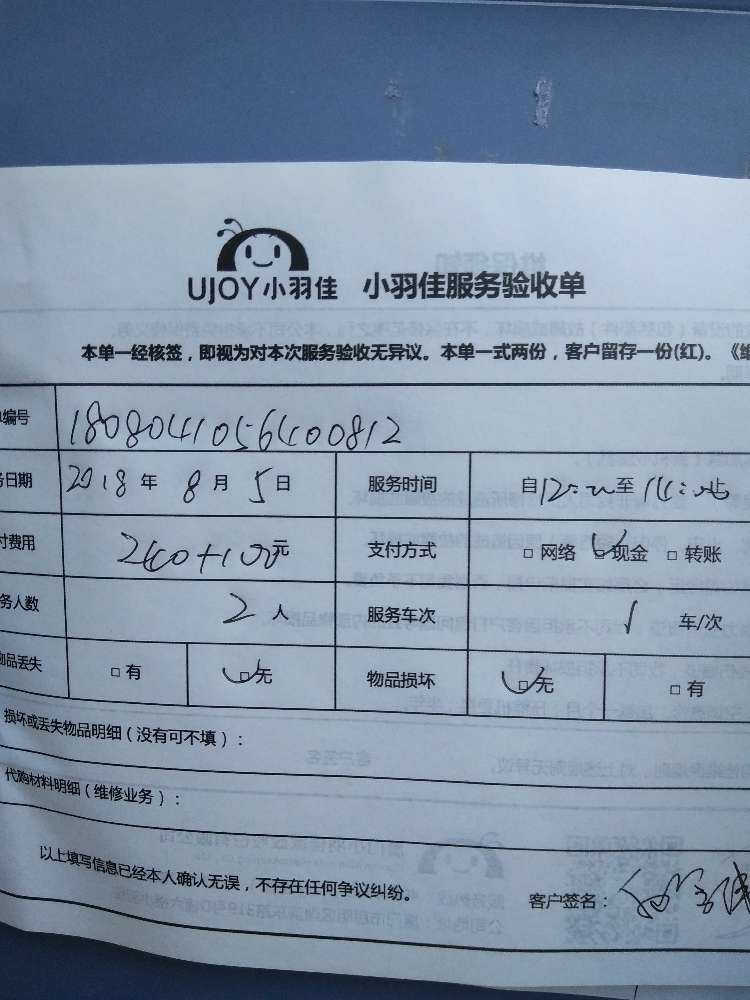 UJOY小羽佳 小羽佳服务验收单
本单一经核签，即视为对本次服务验收无异议。本单一式两份，客户留存一份(红)。《维
编号 1808041056400812
务日期 2018年 8月5日 服务时间 自12:00至14:
付费用 240+100元 支付方式 □网络 □现金 □转账
务人数 2人 服务车次 1 车/次
物品丢失 □有 □无 物品损坏 □无 □有
损坏或丢失物品明细（没有可不填）：
代购材料明细（维修业务）：
以上填写信息已经本人确认无误，不存在任何争议纠纷。 客户签名：